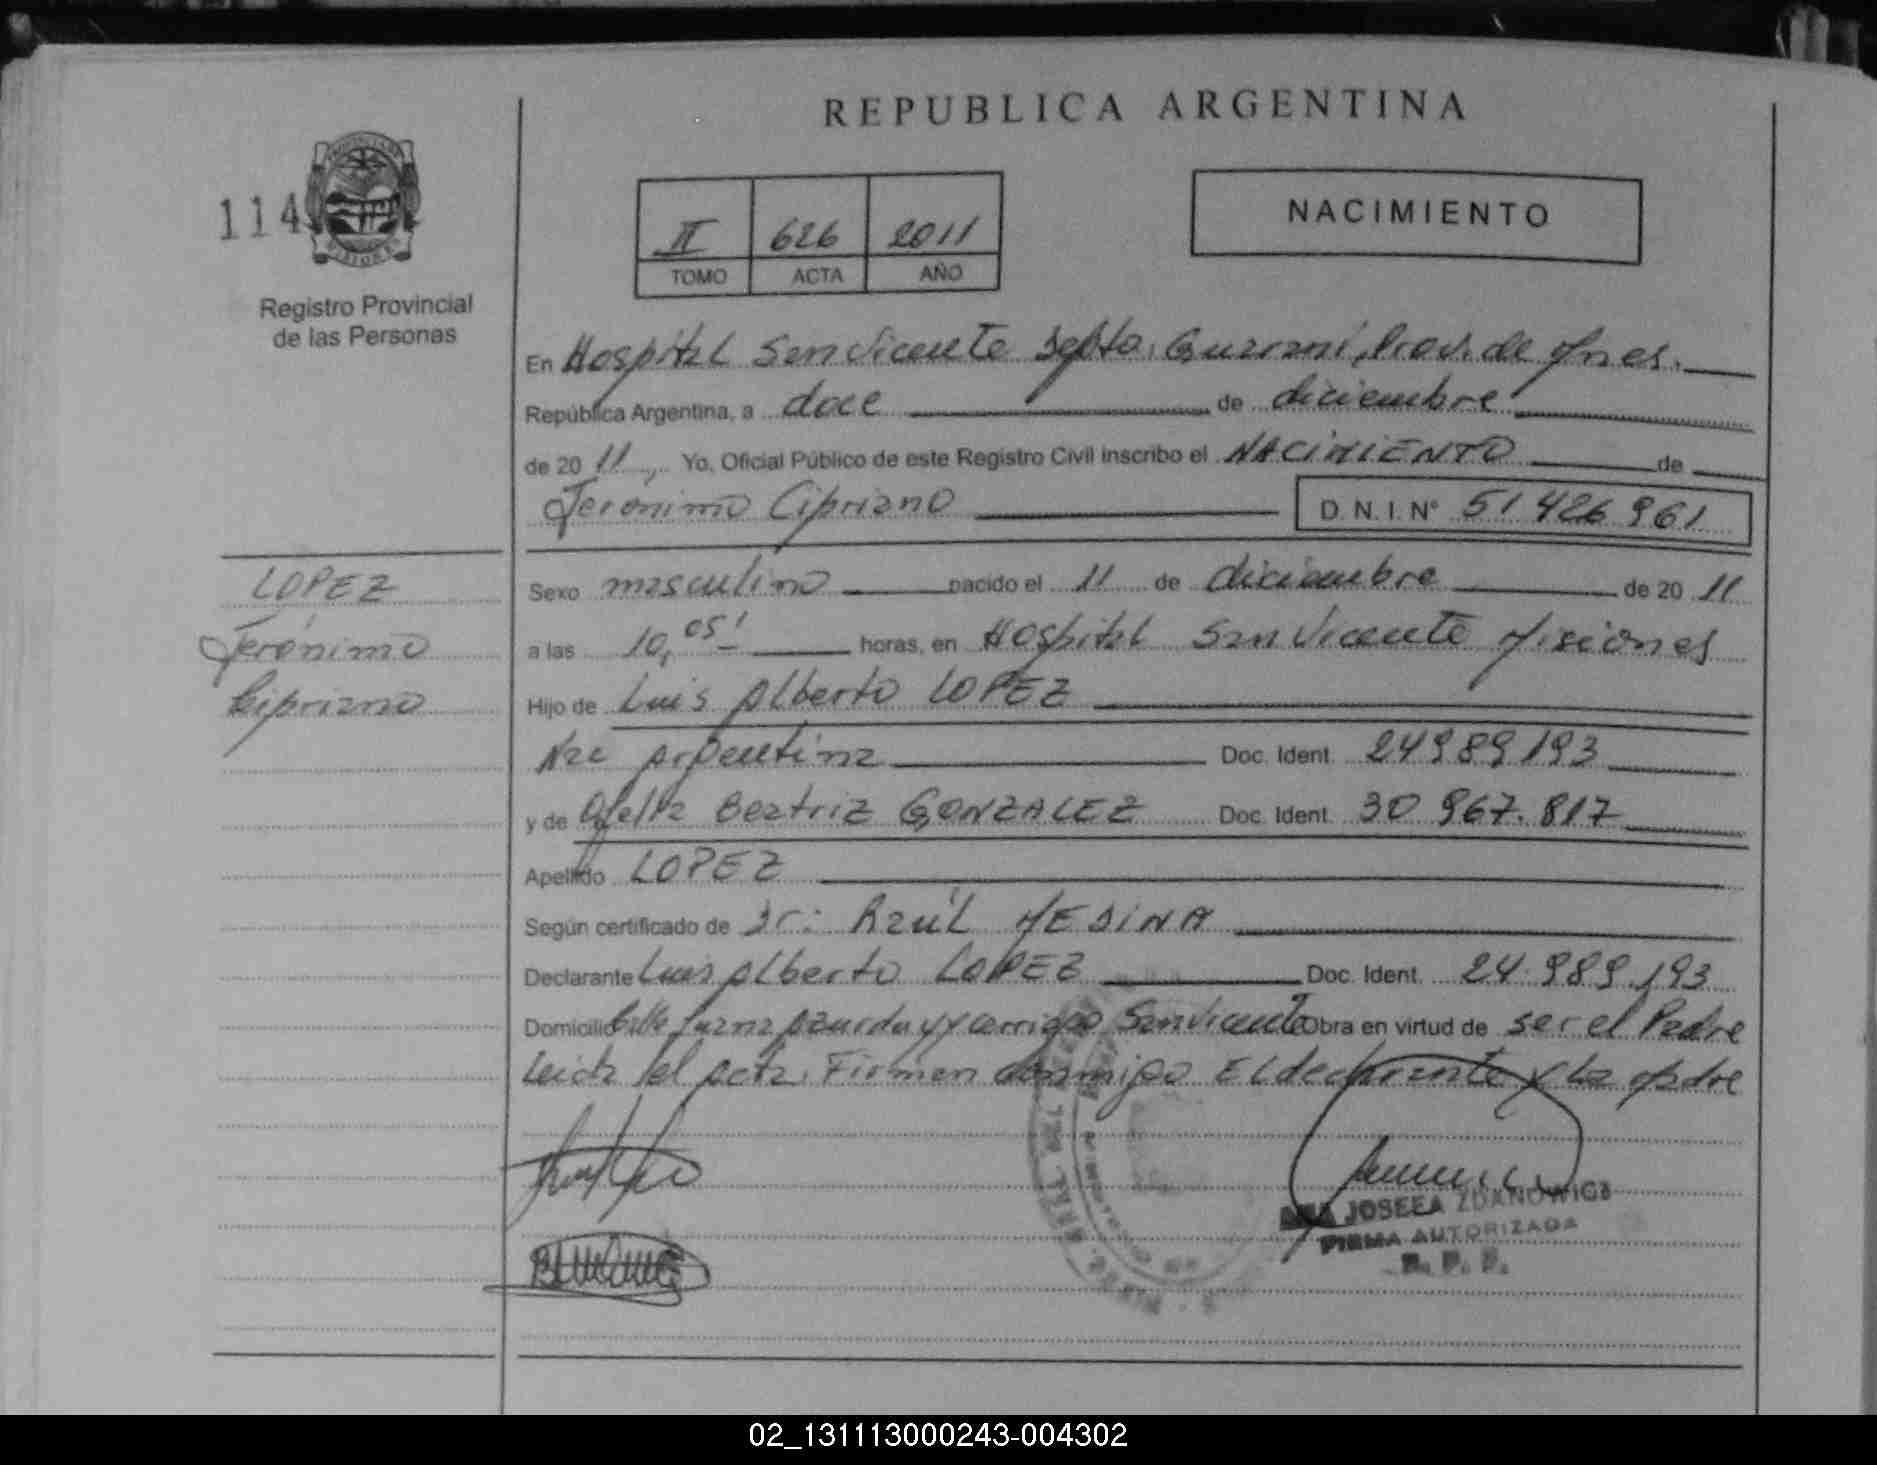 REPUBLICA ARGENTINA
114
Registro Provincial
de las Personas
II 626 2011
TOMO ACTA AÑO
NACIMIENTO
En Hospital San Vicente Depto. Guaraní, Prov. de Mnes.
República Argentina, a doce de diciembre
de 20 11, Yo, Oficial Público de este Registro Civil inscribo el NACIMIENTO de
Jeronimo Cipriano D.N.I. N° 51 426 961
LOPEZ
Jerónimo
Cipriano
Sexo masculino nacido el 11 de diciembre de 20 11
a las 10,05' horas, en Hospital San Vicente Misiones
Hijo de Luis Alberto LOPEZ
Nac Argentina Doc. Ident. 24989193
y de Ofelia Beatriz GONZALEZ Doc. Ident. 30 967.817
Apellido LOPEZ
Según certificado de Dr: Raúl MEDINA
Declarante Luis Alberto LOPEZ Doc. Ident. 24.989.193
Domicilio Calle Juana Azurduy y San Vicente Obra en virtud de ser el Padre
Leida el acta. Firman conmigo El declarante y La Madre
JOSEFA ZDANOWICZ
FIRMA AUTORIZADA
R. P. P.
02_131113000243-004302